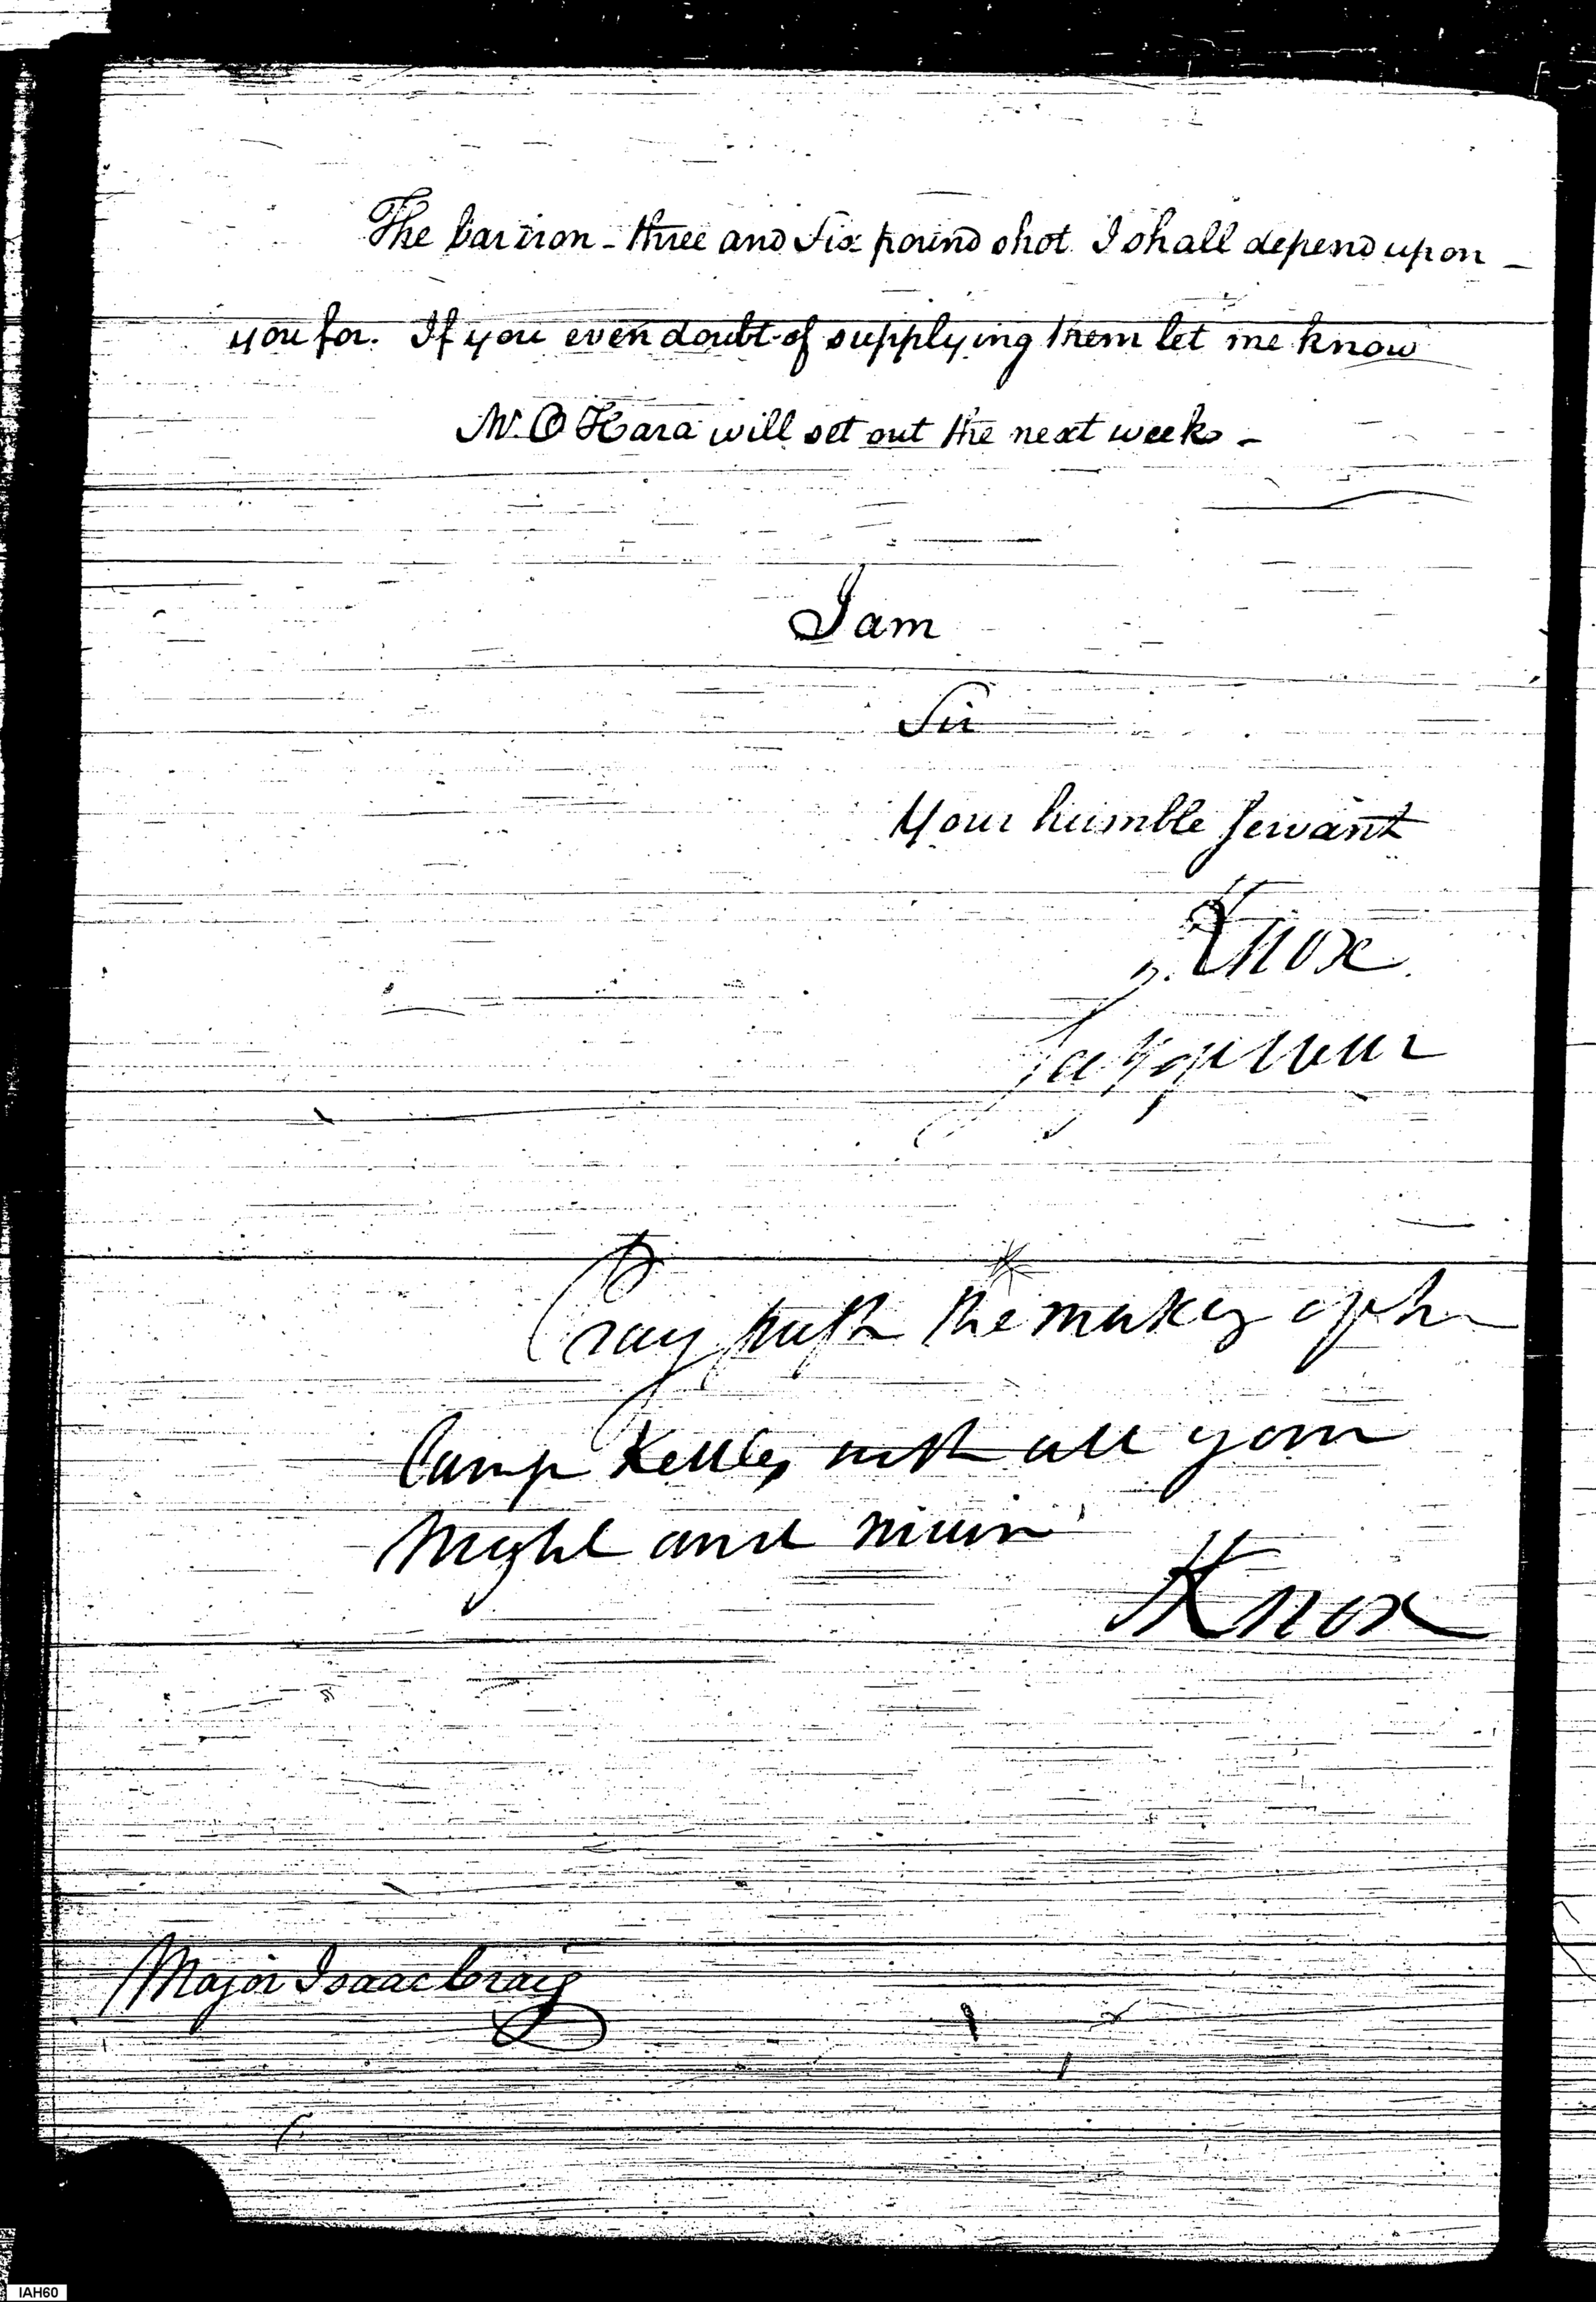 The bar iron - three and six pound shot I shall depend upon -
you for. If you even doubt of supplying them let me know
Mr. O Hara will set out the next week -
I am
Sir
Your humble Servant
Knox
Secy of War
Pray push the making of the
Camp Kettles with all your
might and main
Knox
Major Isaac Craig
IAH60